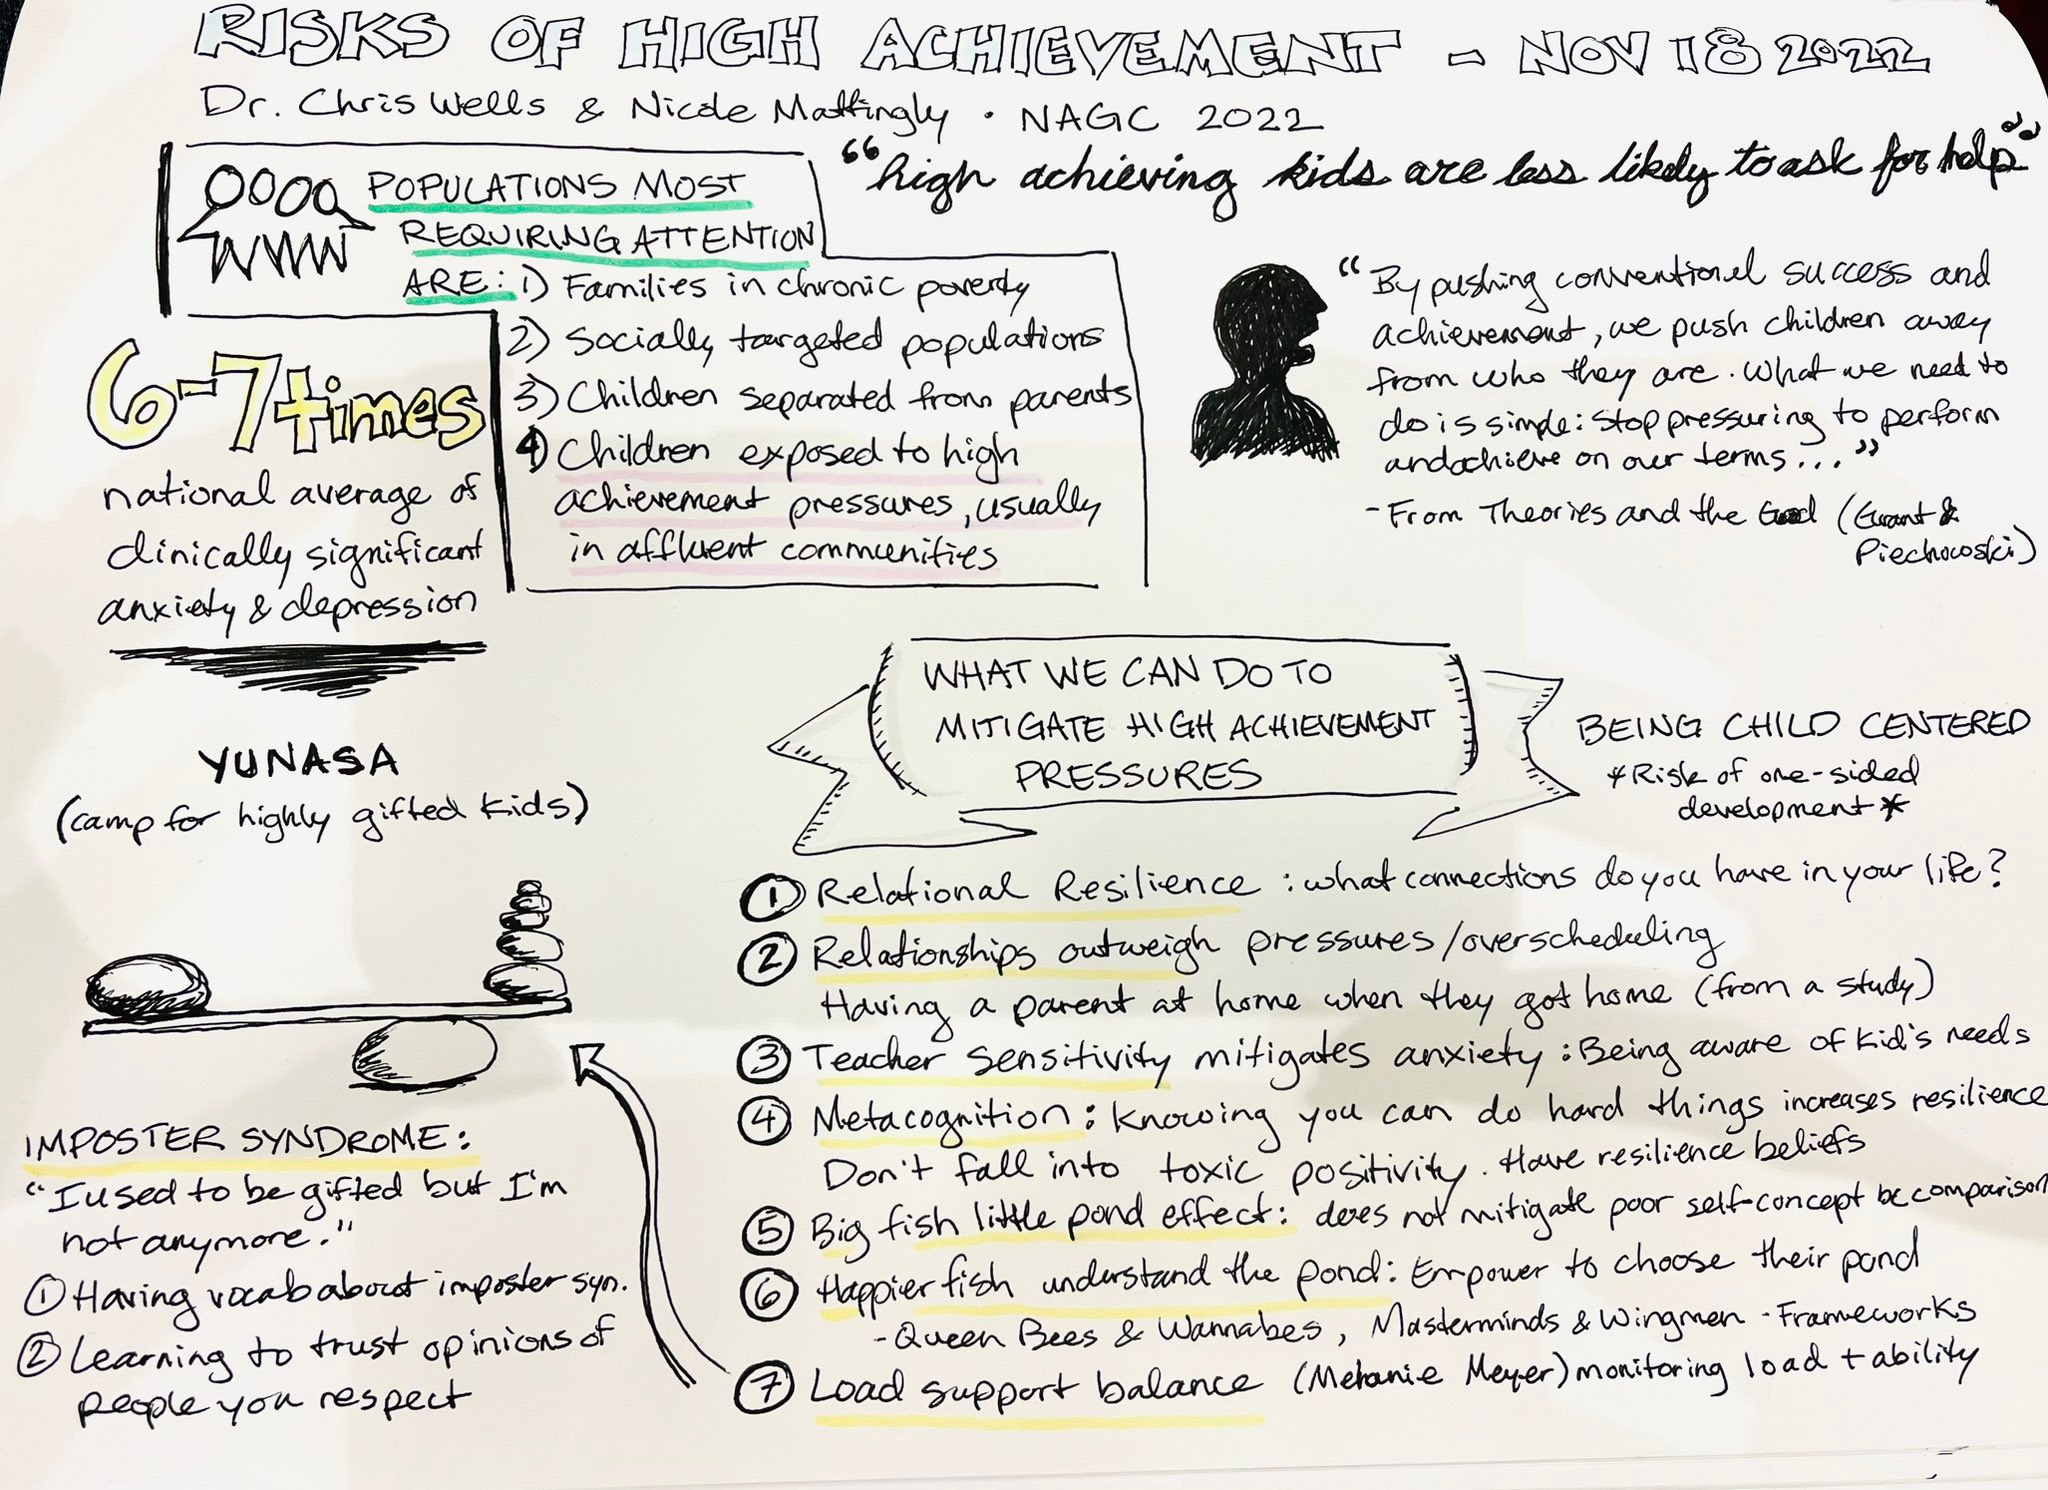 RISKS OF HIGH ACHIEVEMENT - NOV 18 2022
Dr. Chris Wells & Nicole Mattingly · NAGC 2022
"high achieving kids are less likely to ask for help"
POPULATIONS MOST
REQUIRING ATTENTION
ARE: 1) Families in chronic poverty
2) Socially targeted populations
3) Children separated from parents
4) Children exposed to high
achievement pressures, usually
in affluent communities
6-7 times
national average of
clinically significant
anxiety & depression
"By pushing conventional success and
achievement, we push children away
from who they are. What we need to
do is simple: stop pressuring to perform
and achieve on our terms..."
- From Theories and the Good (Grant &
Piechowski)
YUNASA
(camp for highly gifted kids)
IMPOSTER SYNDROME:
"I used to be gifted but I'm
not anymore."
① Having vocab about imposter syn.
② Learning to trust opinions of
people you respect
WHAT WE CAN DO TO
MITIGATE HIGH ACHIEVEMENT
PRESSURES
BEING CHILD CENTERED
*Risk of one-sided
development*
① Relational Resilience: what connections do you have in your life?
② Relationships outweigh pressures/overscheduling
Having a parent at home when they got home (from a study)
③ Teacher sensitivity mitigates anxiety: Being aware of kid's needs
④ Metacognition: Knowing you can do hard things increases resilience
Don't fall into toxic positivity. Have resilience beliefs
⑤ Big fish little pond effect: does not mitigate poor self-concept bc comparison
⑥ Happier fish understand the pond: Empower to choose their pond
- Queen Bees & Wannabes, Masterminds & Wingmen - Frameworks
⑦ Load support balance (Melanie Meyer) monitoring load + ability